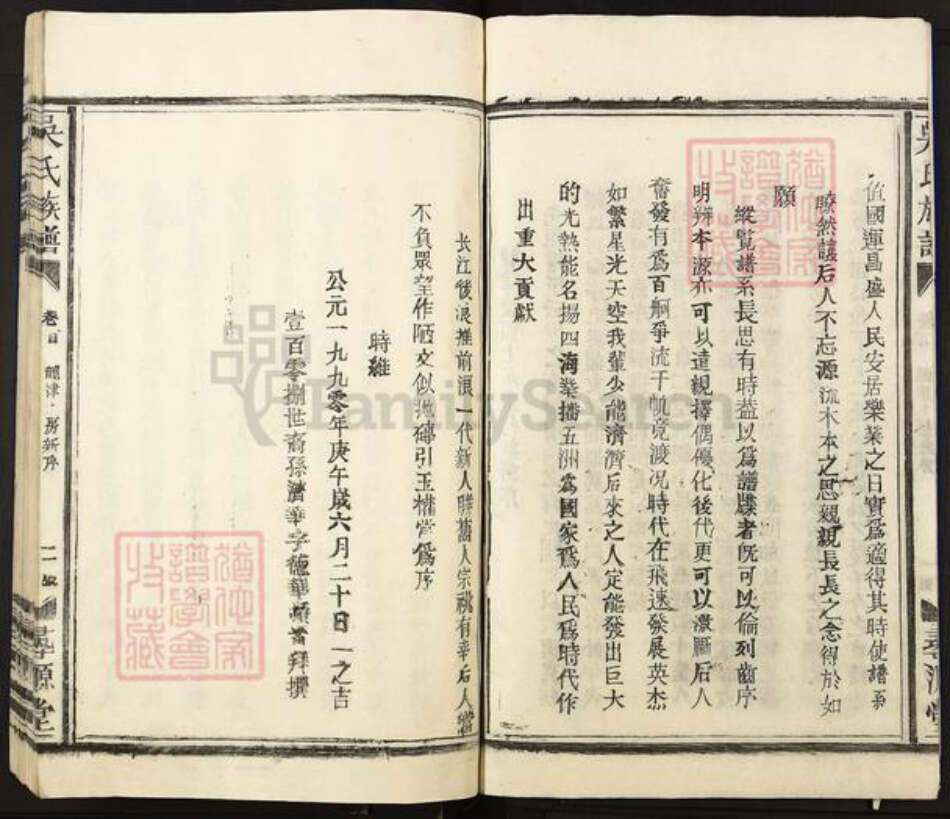 值國運昌盛人民安居樂業之日實爲適得其時使譜系
瞭然讓后人不忘源流木本之思親親長長之念得於如
願
縱覽譜系長思有時益以爲譜牒者既可以倫列齒序
明辨本源亦可以達親擇偶優化後代更可以激勵后人
奮發有爲百舸爭流千帆竟渡况時代在飛速發展英杰
如繁星光天空我輩少能濟濟后來之人定能發出巨大
的光熱能名揚四海業播五洲爲國家爲人民爲時代作
出重大貢獻
長江後浪推前浪一代新人勝舊人宗祧有幸后人當
不負眾望作陋文似拋磚引玉權當爲序
時維
公元一九九零年庚午歲六月二十日一之吉
壹百零捌世裔孫濟華字德華頓首拜撰
吳氏族譜
卷首
房新序
尋源堂
吳氏族譜
尋源堂
猶他家譜學會收藏
猶他家譜學會收藏
FamilySearch